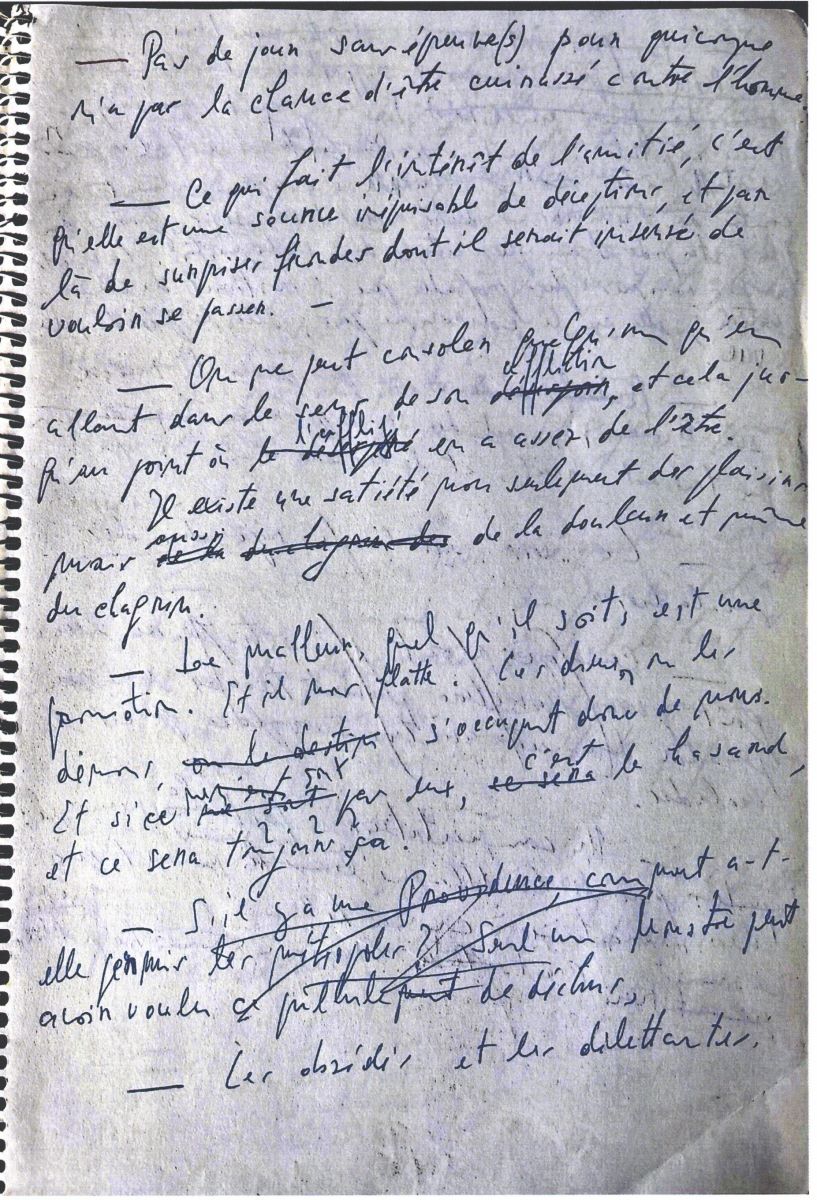 — Pas de jour sans épreuve(s) pour quiconque
n'a pas la chance d'être cuirassé contre l'homme.
— Ce qui fait l'intérêt de l'amitié, c'est
qu'elle est une source inépuisable de déceptions, et par
là de surprises fécondes dont il serait insensé de
vouloir se passer. —
— On ne peut consoler quelqu'un qu'en
affliction
allant dans le sens de son désespoir, et cela jus-
l'affligé
qu'au point où le désespéré en a assez de l'être.
Il existe une satiété non seulement des plaisirs
aussi
mais de la du chagrin des de la douleur et même
du chagrin.
— Le malheur, quel qu'il soit, est une
promotion. Et il nous flatte. Les dieux, ou les
démons, ou le destin s'occupent donc de nous.
c'est
Et si ce ne sont pas eux, ce sera le hasard,
et ce sera toujours ça.
— S'il y a une Providence, comment a-t-
elle permis les métropoles? Seul un Monstre peut
avoir voulu ce pullulement de déchus.
— Les obsédés et les dilettantes.